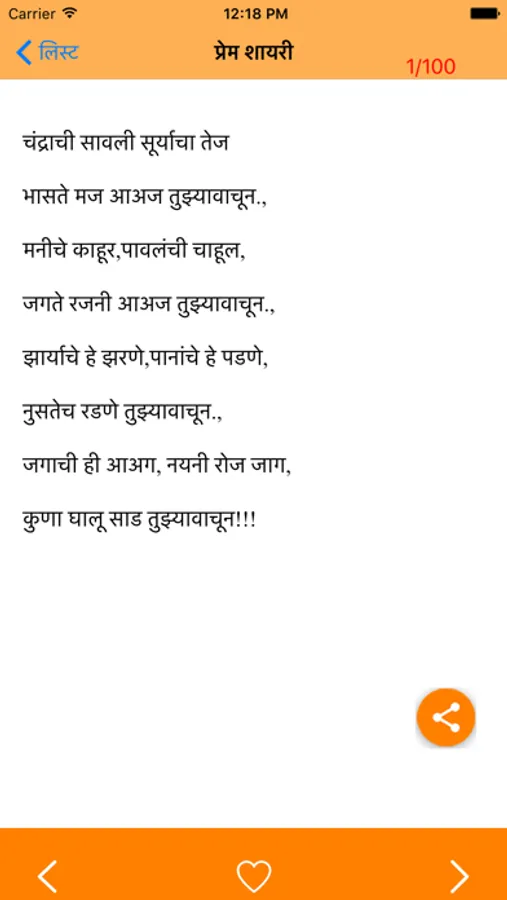 Carrier 12:18 PM
लिस्ट प्रेम शायरी 1/100
चंद्राची सावली सूर्याचा तेज
भासते मज आअज तुझ्यावाचून.,
मनीचे काहूर,पावलंची चाहूल,
जगते रजनी आअज तुझ्यावाचून.,
झार्याचे हे झरणे,पानांचे हे पडणे,
नुसतेच रडणे तुझ्यावाचून.,
जगाची ही आअग, नयनी रोज जाग,
कुणा घालू साड तुझ्यावाचून!!!